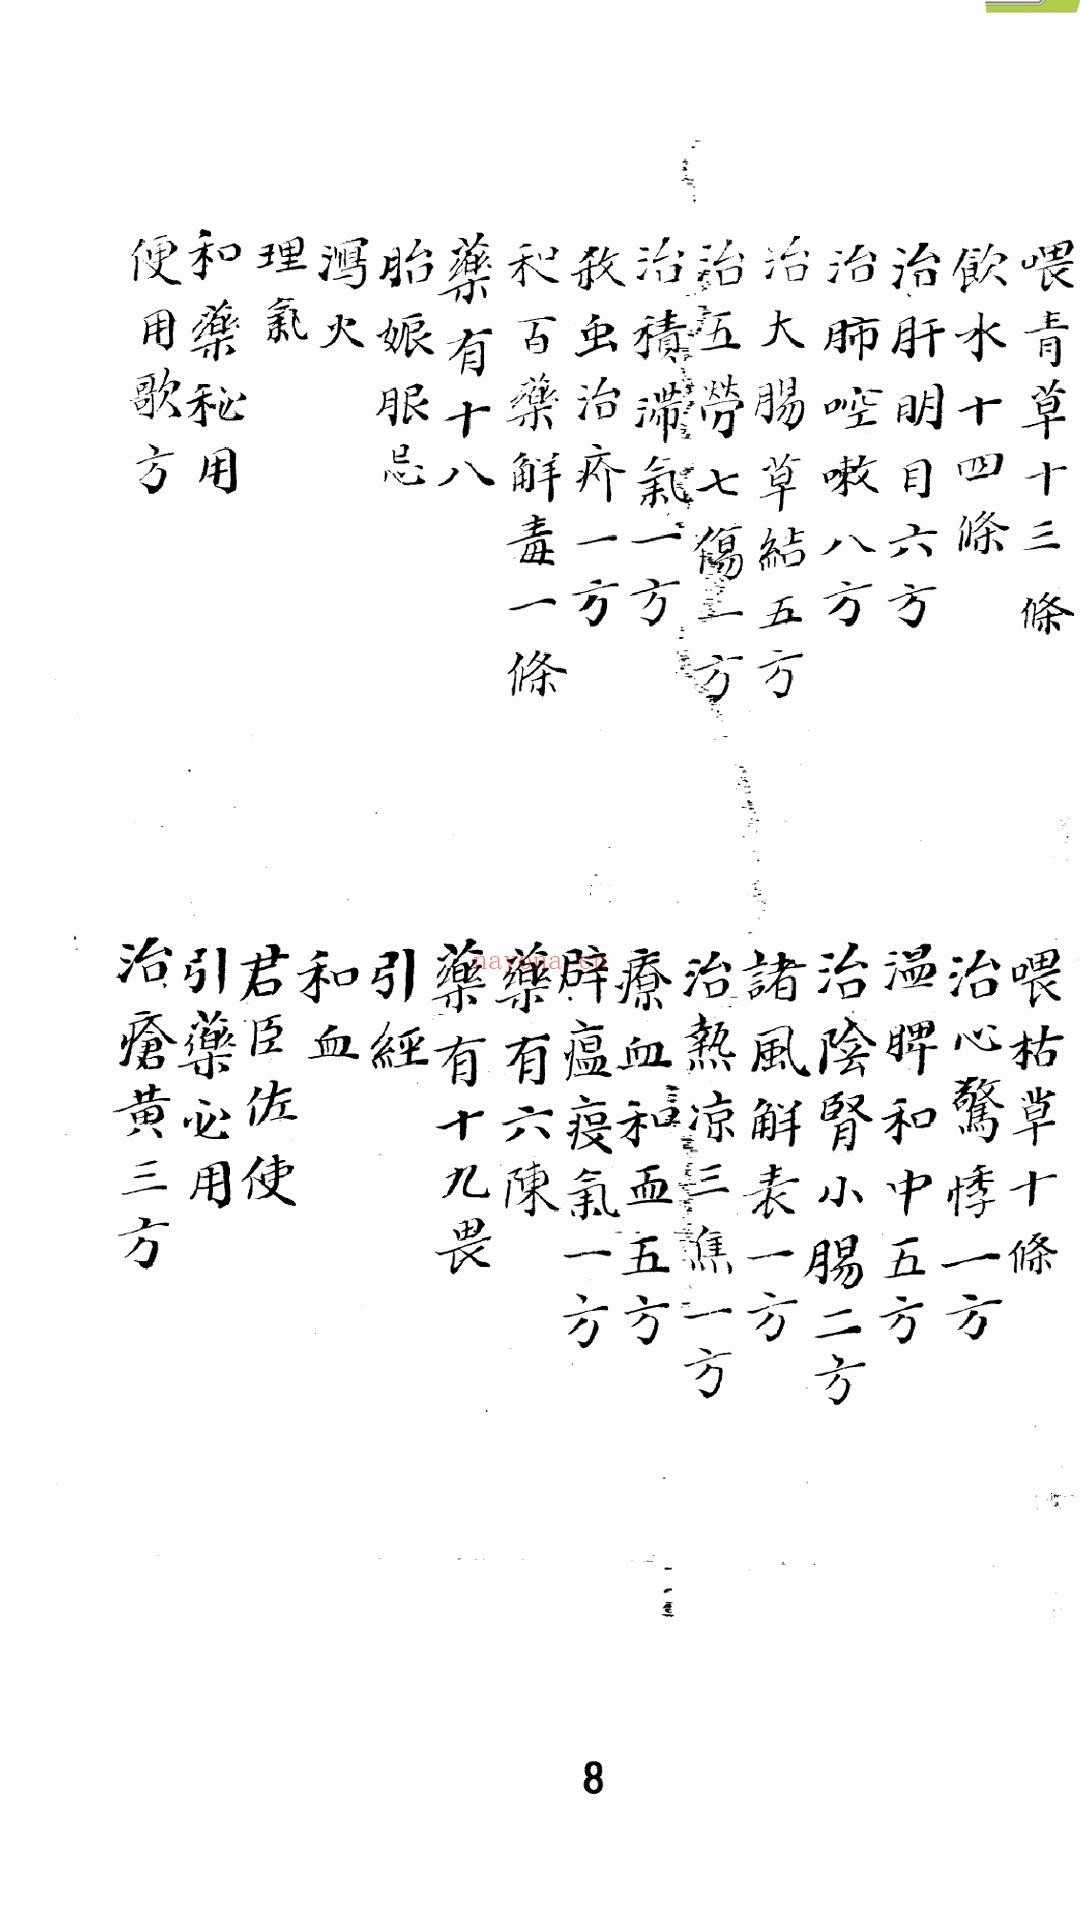 喂青草十三條
喂枯草十條
飲水十四條
治心驚悸一方
治肝明目六方
温脾和中五方
治肺啌嗽八方
治陰腎小腸二方
治大腸草結五方
諸風解表一方
治五勞七傷一方
治熱凉三焦一方
治積滯氣一方
療血和血五方
殺虫治疥一方
辟瘟疫氣一方
和百藥解毒一條
藥有六陳
藥有十八
藥有十九畏
胎娠服忌
引經
瀉火
和血
理氣
君臣佐使
和藥秘用
引藥必用
便用歌方
治瘡黄三方
nayona.cn
8